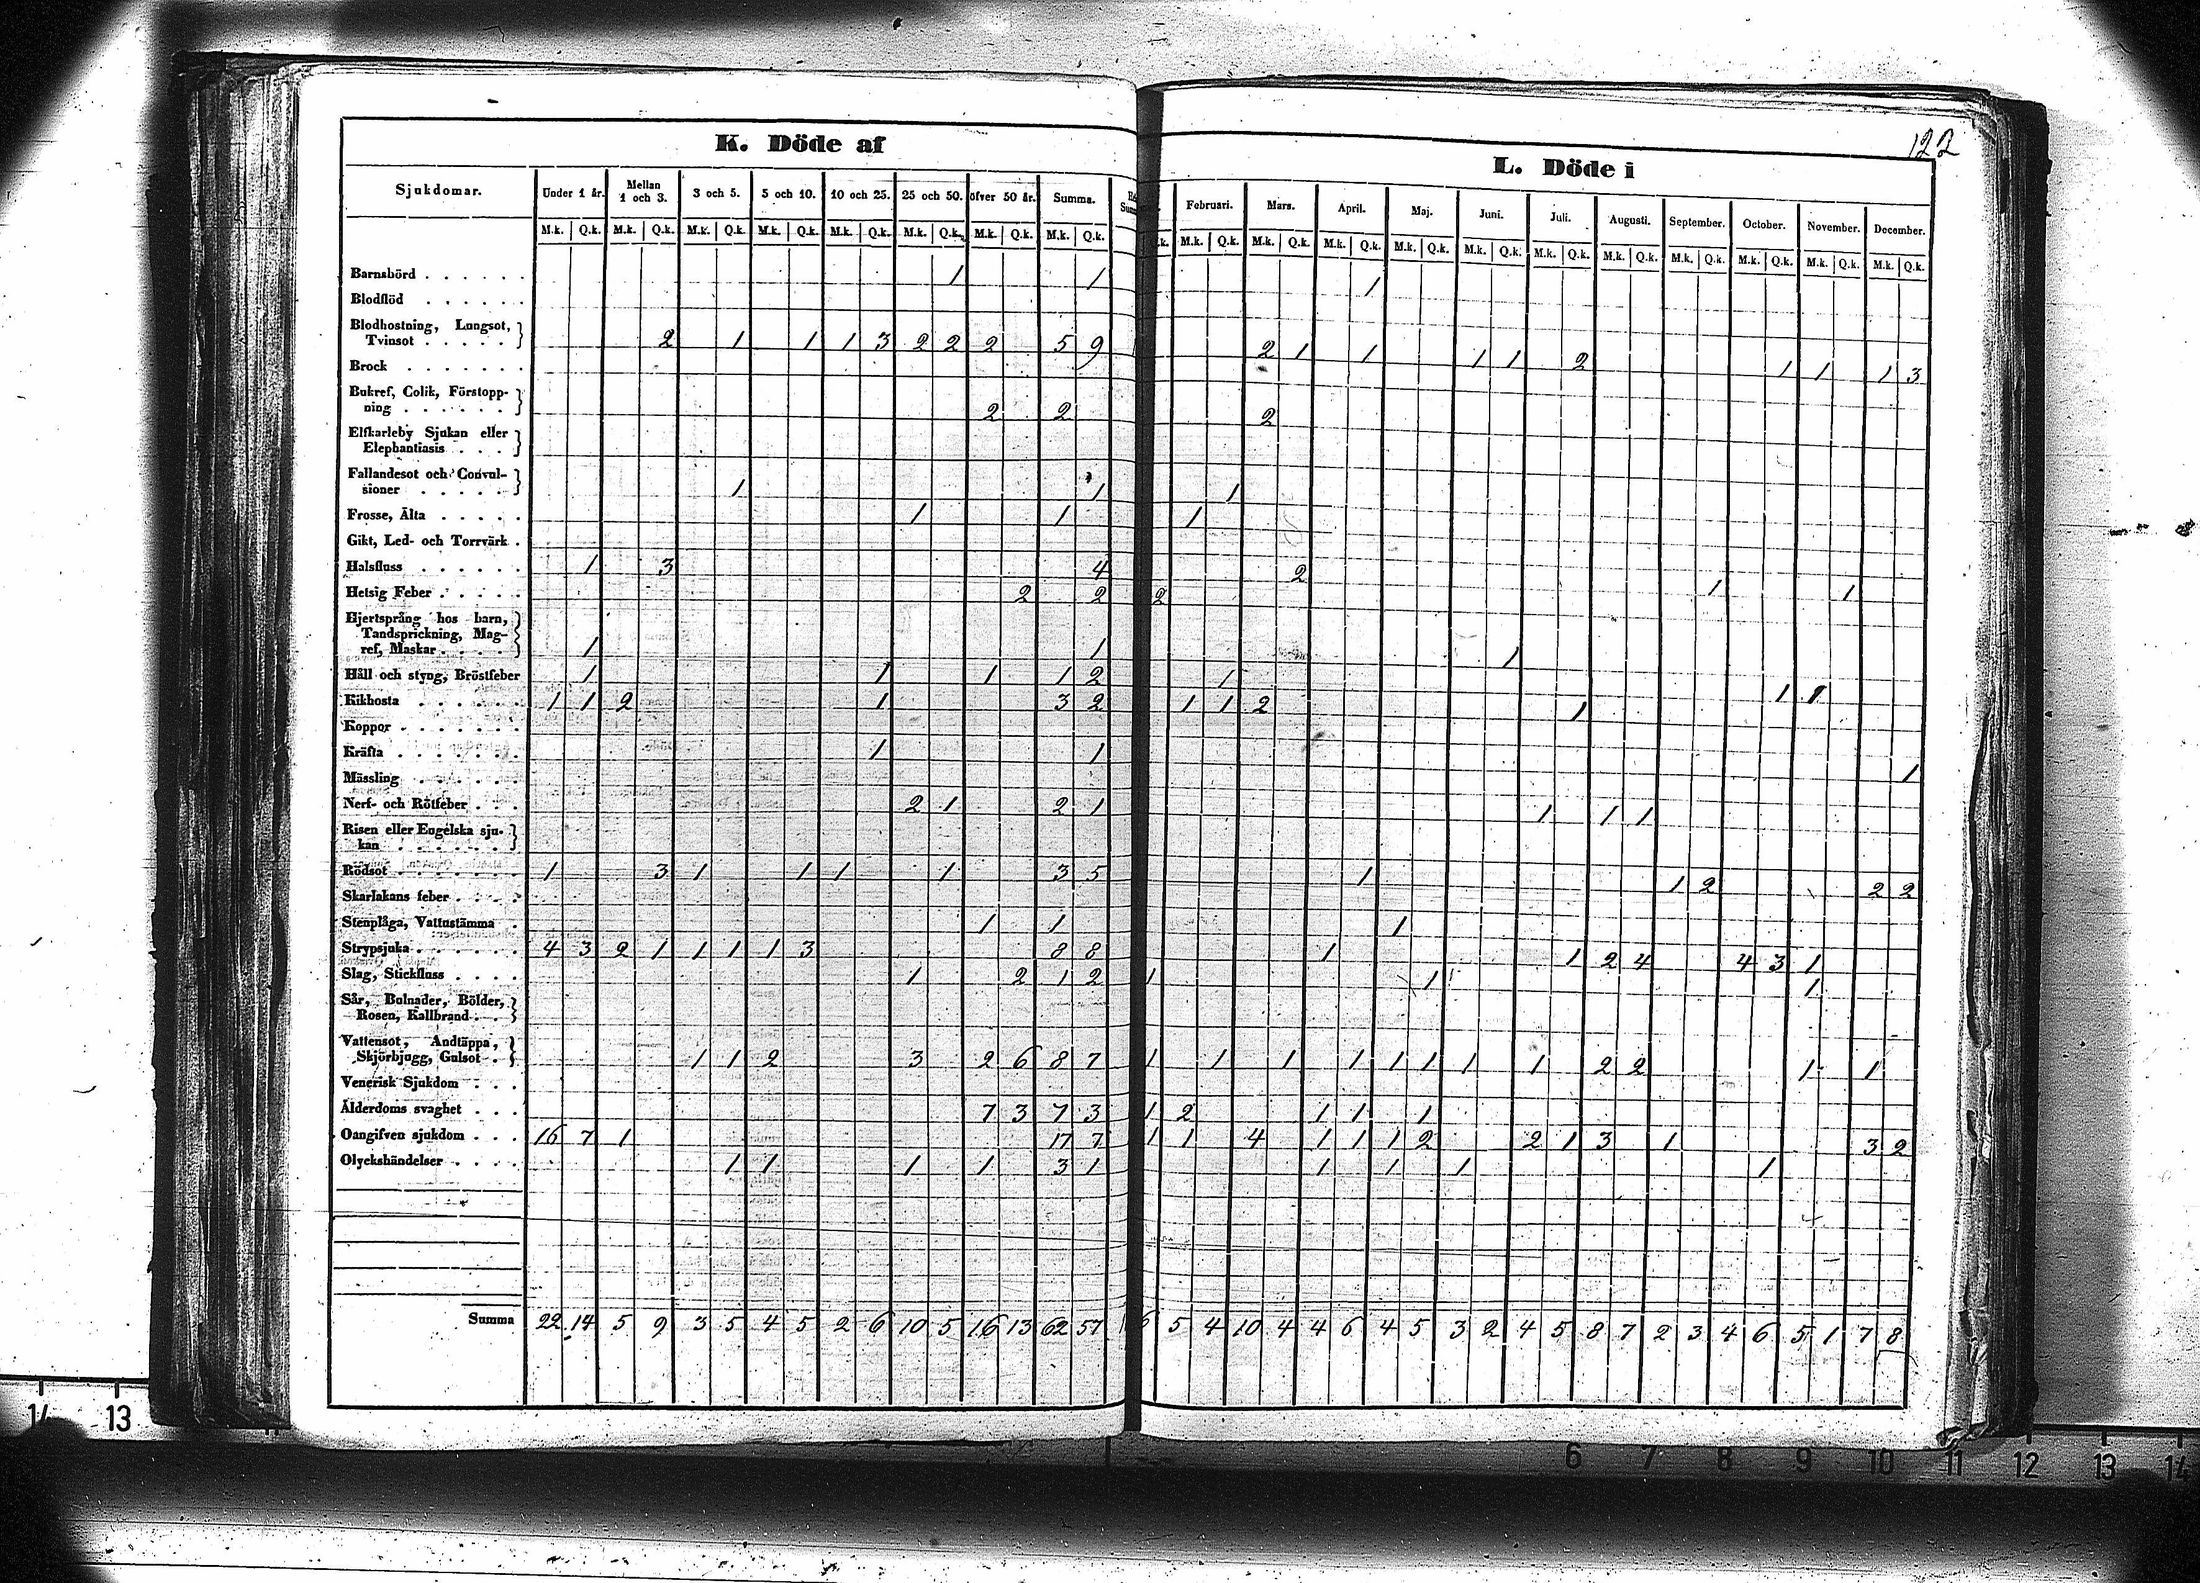 122
K. Döde af
L. Döde i
Sjukdomar. Under 1 år. Mellan 1 och 3. 3 och 5. 5 och 10. 10 och 25. 25 och 50. öfver 50 år. Summa. Februari. Mars. April. Maj. Juni. Juli. Augusti. September. October. November. December.
M.k. Q.k. M.k. Q.k. M.k. Q.k. M.k. Q.k. M.k. Q.k. M.k. Q.k. M.k. Q.k. M.k. Q.k. M.k. Q.k. M.k. Q.k. M.k. Q.k. M.k. Q.k. M.k. Q.k. M.k. Q.k. M.k. Q.k. M.k. Q.k. M.k. Q.k. M.k. Q.k. M.k. Q.k.
Barnsbörd 1 1 1
Blodflöd
Blodhostning, Lungsot,
Tvinsot 2 1 1 1 3 2 2 2 5 9 2 1 1 1 1 2 1 1 1 3
Brock
Bukref, Colik, Förstopp-
ning 2 2 2
Elfkarleby Sjukan eller
Elephantiasis
Fallandesot och Convul-
sioner 1 1 1
Frosse, Älta 1 1 1
Gikt, Led- och Torrvärk
Halsfluss 1 3 4 2 1 1
Hetsig Feber 2 2 2
Hjertsprång hos barn,
Tandsprickning, Mag-
ref, Maskar 1 1 1
Håll och styng, Bröstfeber 1 1 1 1 2 1 1 1
Kikhosta 1 1 2 1 3 2 1 1 2 1
Koppor
Kräfta 1 1 1
Mässling
Nerf- och Rötfeber 2 1 2 1 1 1 1
Risen eller Engelska sju-
kan
Rödsot 1 3 1 1 1 1 3 5 1 1 2 2 2
Skarlakans feber
Stenplåga, Vattustämma 1 1 1
Strypsjuka 4 3 2 1 1 1 1 3 8 8 1 1 2 4 4 3 1
Slag, Stickfluss 1 2 1 2 1 1 1
Sår, Bulnader, Bölder,
Rosen, Kallbrand
Vattensot, Andtäppa,
Skjörbjugg, Gulsot 1 1 2 3 2 6 8 7 1 1 1 1 1 1 1 1 2 2 1 1
Venerisk Sjukdom
Ålderdoms svaghet 7 3 7 3 1 2 1 1 1
Oangifven sjukdom 16 7 1 17 7 1 1 4 1 1 1 2 2 1 3 1 3 2
Olyckshändelser 1 1 1 1 3 1 1 1 1 1
Summa 22 14 5 9 3 5 4 5 2 6 10 5 16 13 62 57 6 5 4 10 4 4 6 4 5 3 2 4 5 8 7 2 3 4 6 5 1 7 8
14 13 6 7 8 9 10 11 12 13 14